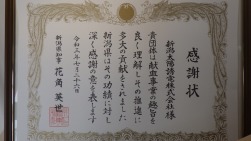 感謝状
新潟太陽誘電株式会社様
貴団体は献血事業の趣旨を
良く理解しその推進に
多大の貢献をされました
新潟県はその功績に対し
深く感謝の意を表します
令和三年七月二十六日
新潟県知事 花角英世